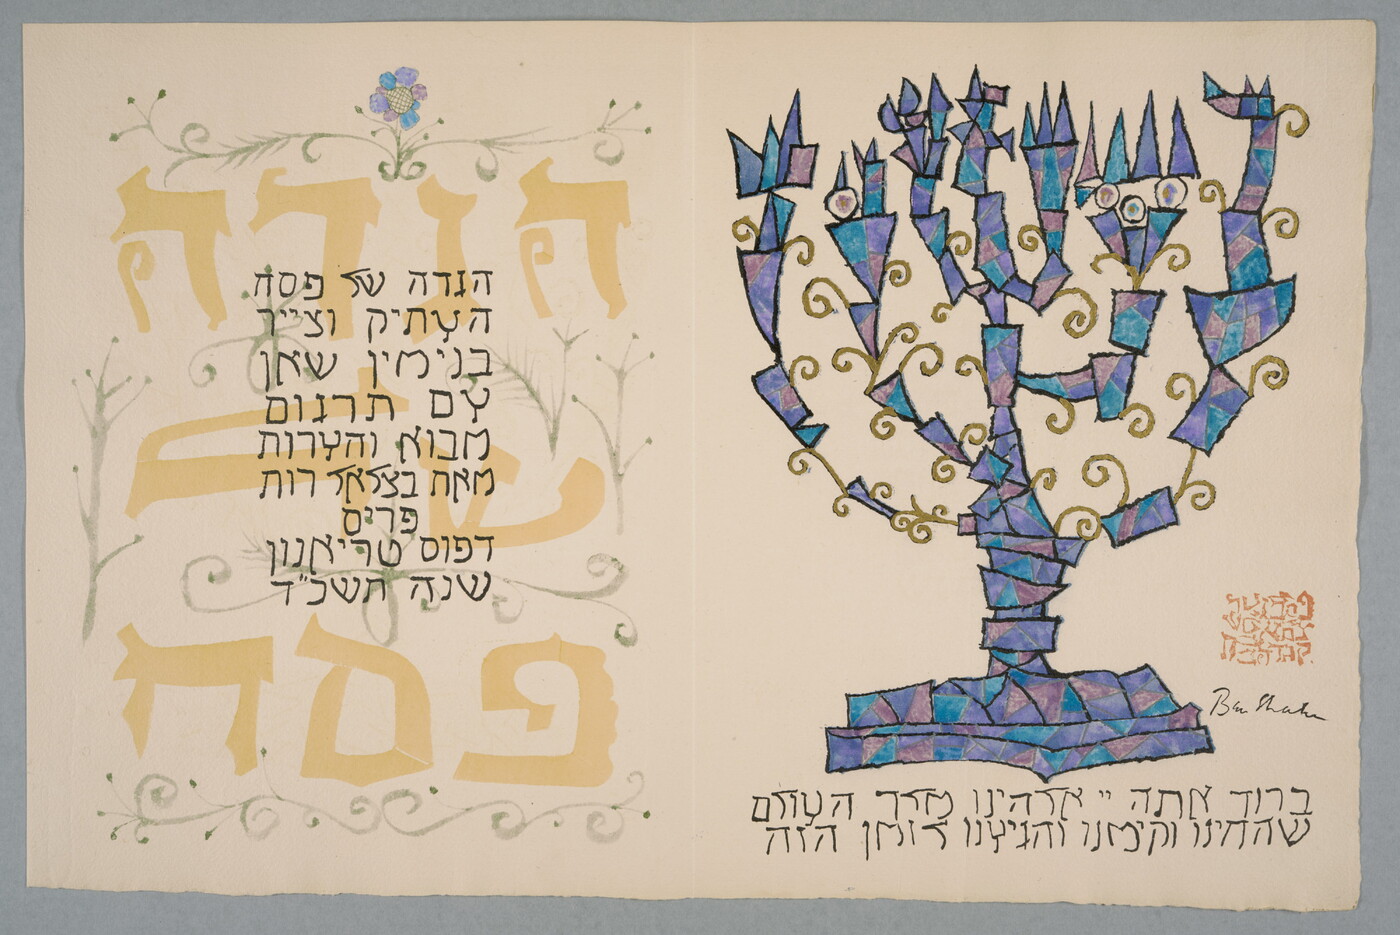 Ben Shahn
ברוך אתה יי אלהינו מלך העולם
שהחינו וקימנו והגיענו לזמן הזה
הגדה
של
פסח
הגדה של פסח
העתיק וצייר
בנימין שאן
עם תרגום
מבוא והערות
מאת בצלאל רות
פריס
דפוס טריאנון
שנה תשכ״ד